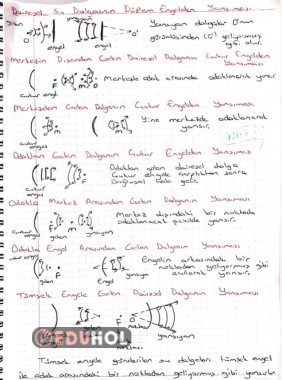 Dairesel Su Dalgasının Düzlem Engelden Yansıması
Yansıyan dalgalar O'nun
görüntüsünden (O') geliyormuş
gibi olur.
engel
engel
Merkezin Dışından Gelen Dairesel Dalganın Çukur Engelden
Yansıması
Merkezle odak arasında odaklanarak yansır.
Çukur engel
Merkezden Gelen Dalganın Çukur Engelden Yansıması
Yine merkezde odaklanarak
yansır.
Odaktan Gelen Dalganın Çukur Engelden Yansıması
Odaktan gelen dairesel dalga
Çukur engele çarptıktan sonra
Doğrusal hale gelir.
Çukur engel
Odakla Merkez Arasından Gelen Dalganın Yansıması
Merkez dışındaki bir noktada
odaklanacak şekilde yansır.
engel gelen yansıyan
Odakla Engel Arasından Gelen Dalganın Yansıması
Engelin arkasındaki bir
noktadan geliyormuş gibi
yansır.
engel gelen yansıyan
Tümsek Engele Gelen Dairesel Dalganın Yansıması
EDUHOL
gelen
yansıyan
Tümsek engele gönderilen su dalgaları tümsek engel
ile odak arasındaki bir noktadan geliyormuş gibi yansırlar.